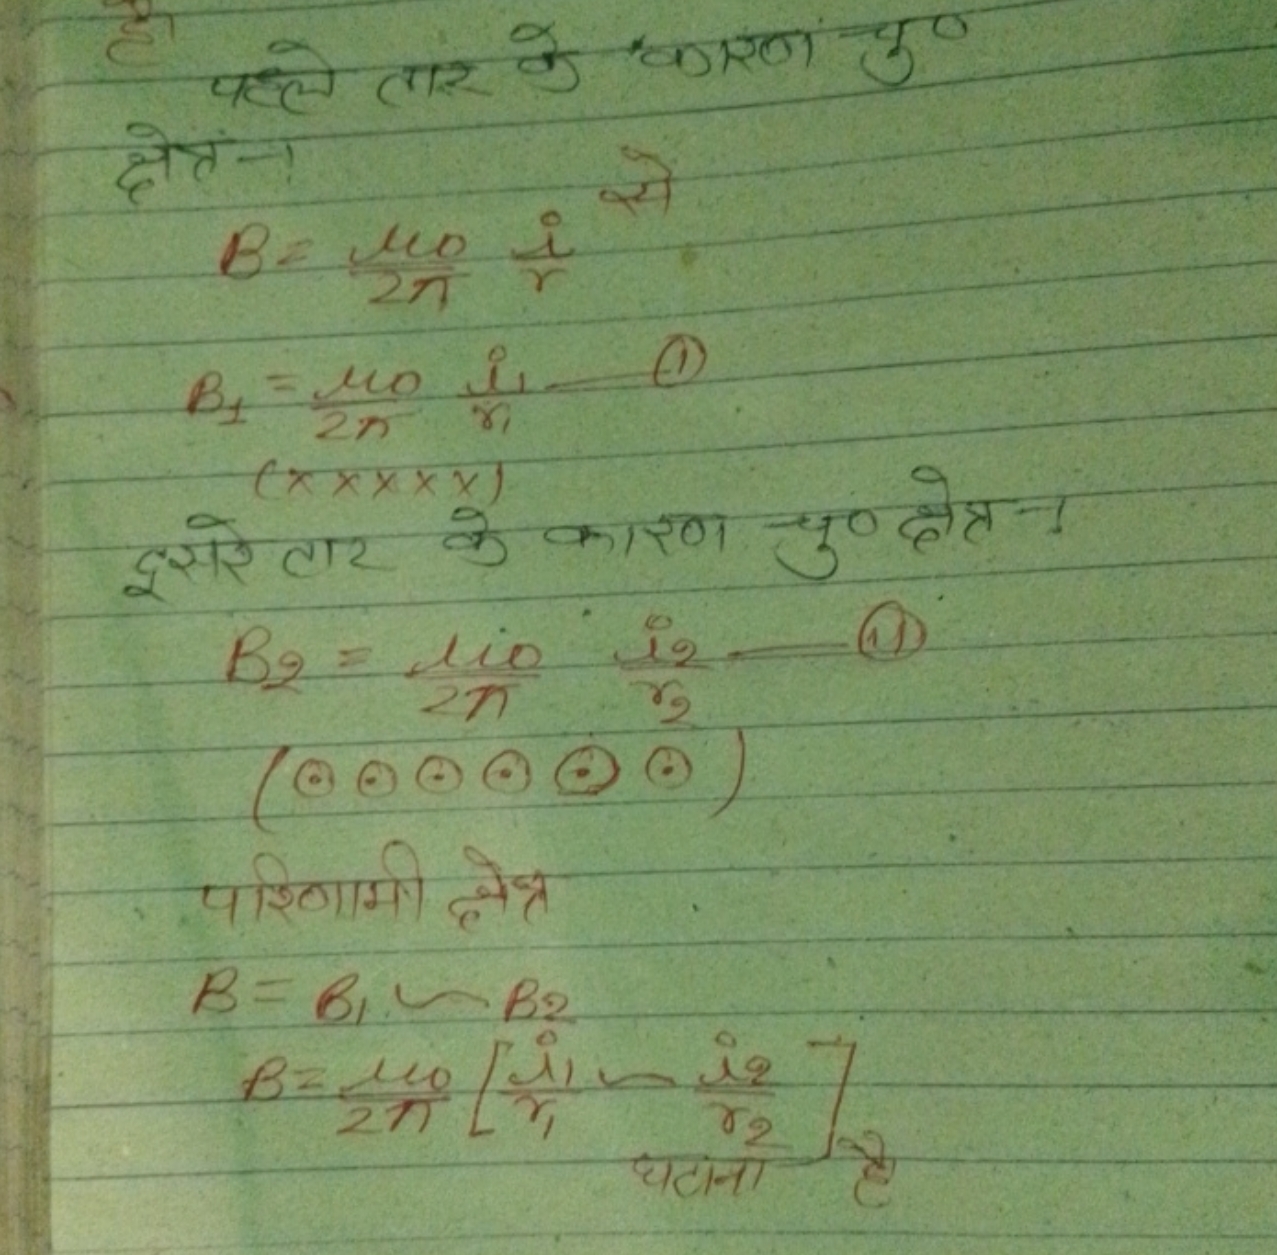 है।
पहले तार के कारण चु०
क्षेत्र-।
B = μ0/2π i/r से
B1 = μ0/2π i1/r1 — ①
(× × × × ×)
दूसरे तार के कारण चु० क्षेत्र-।
B2 = μ0/2π i2/r2 — ⑪
(⊙ ⊙ ⊙ ⊙ ⊙ ⊙)
परिणामी क्षेत्र
B = B1 ~ B2
B = μ0/2π [i1/r1 ~ i2/r2]
घटाना है